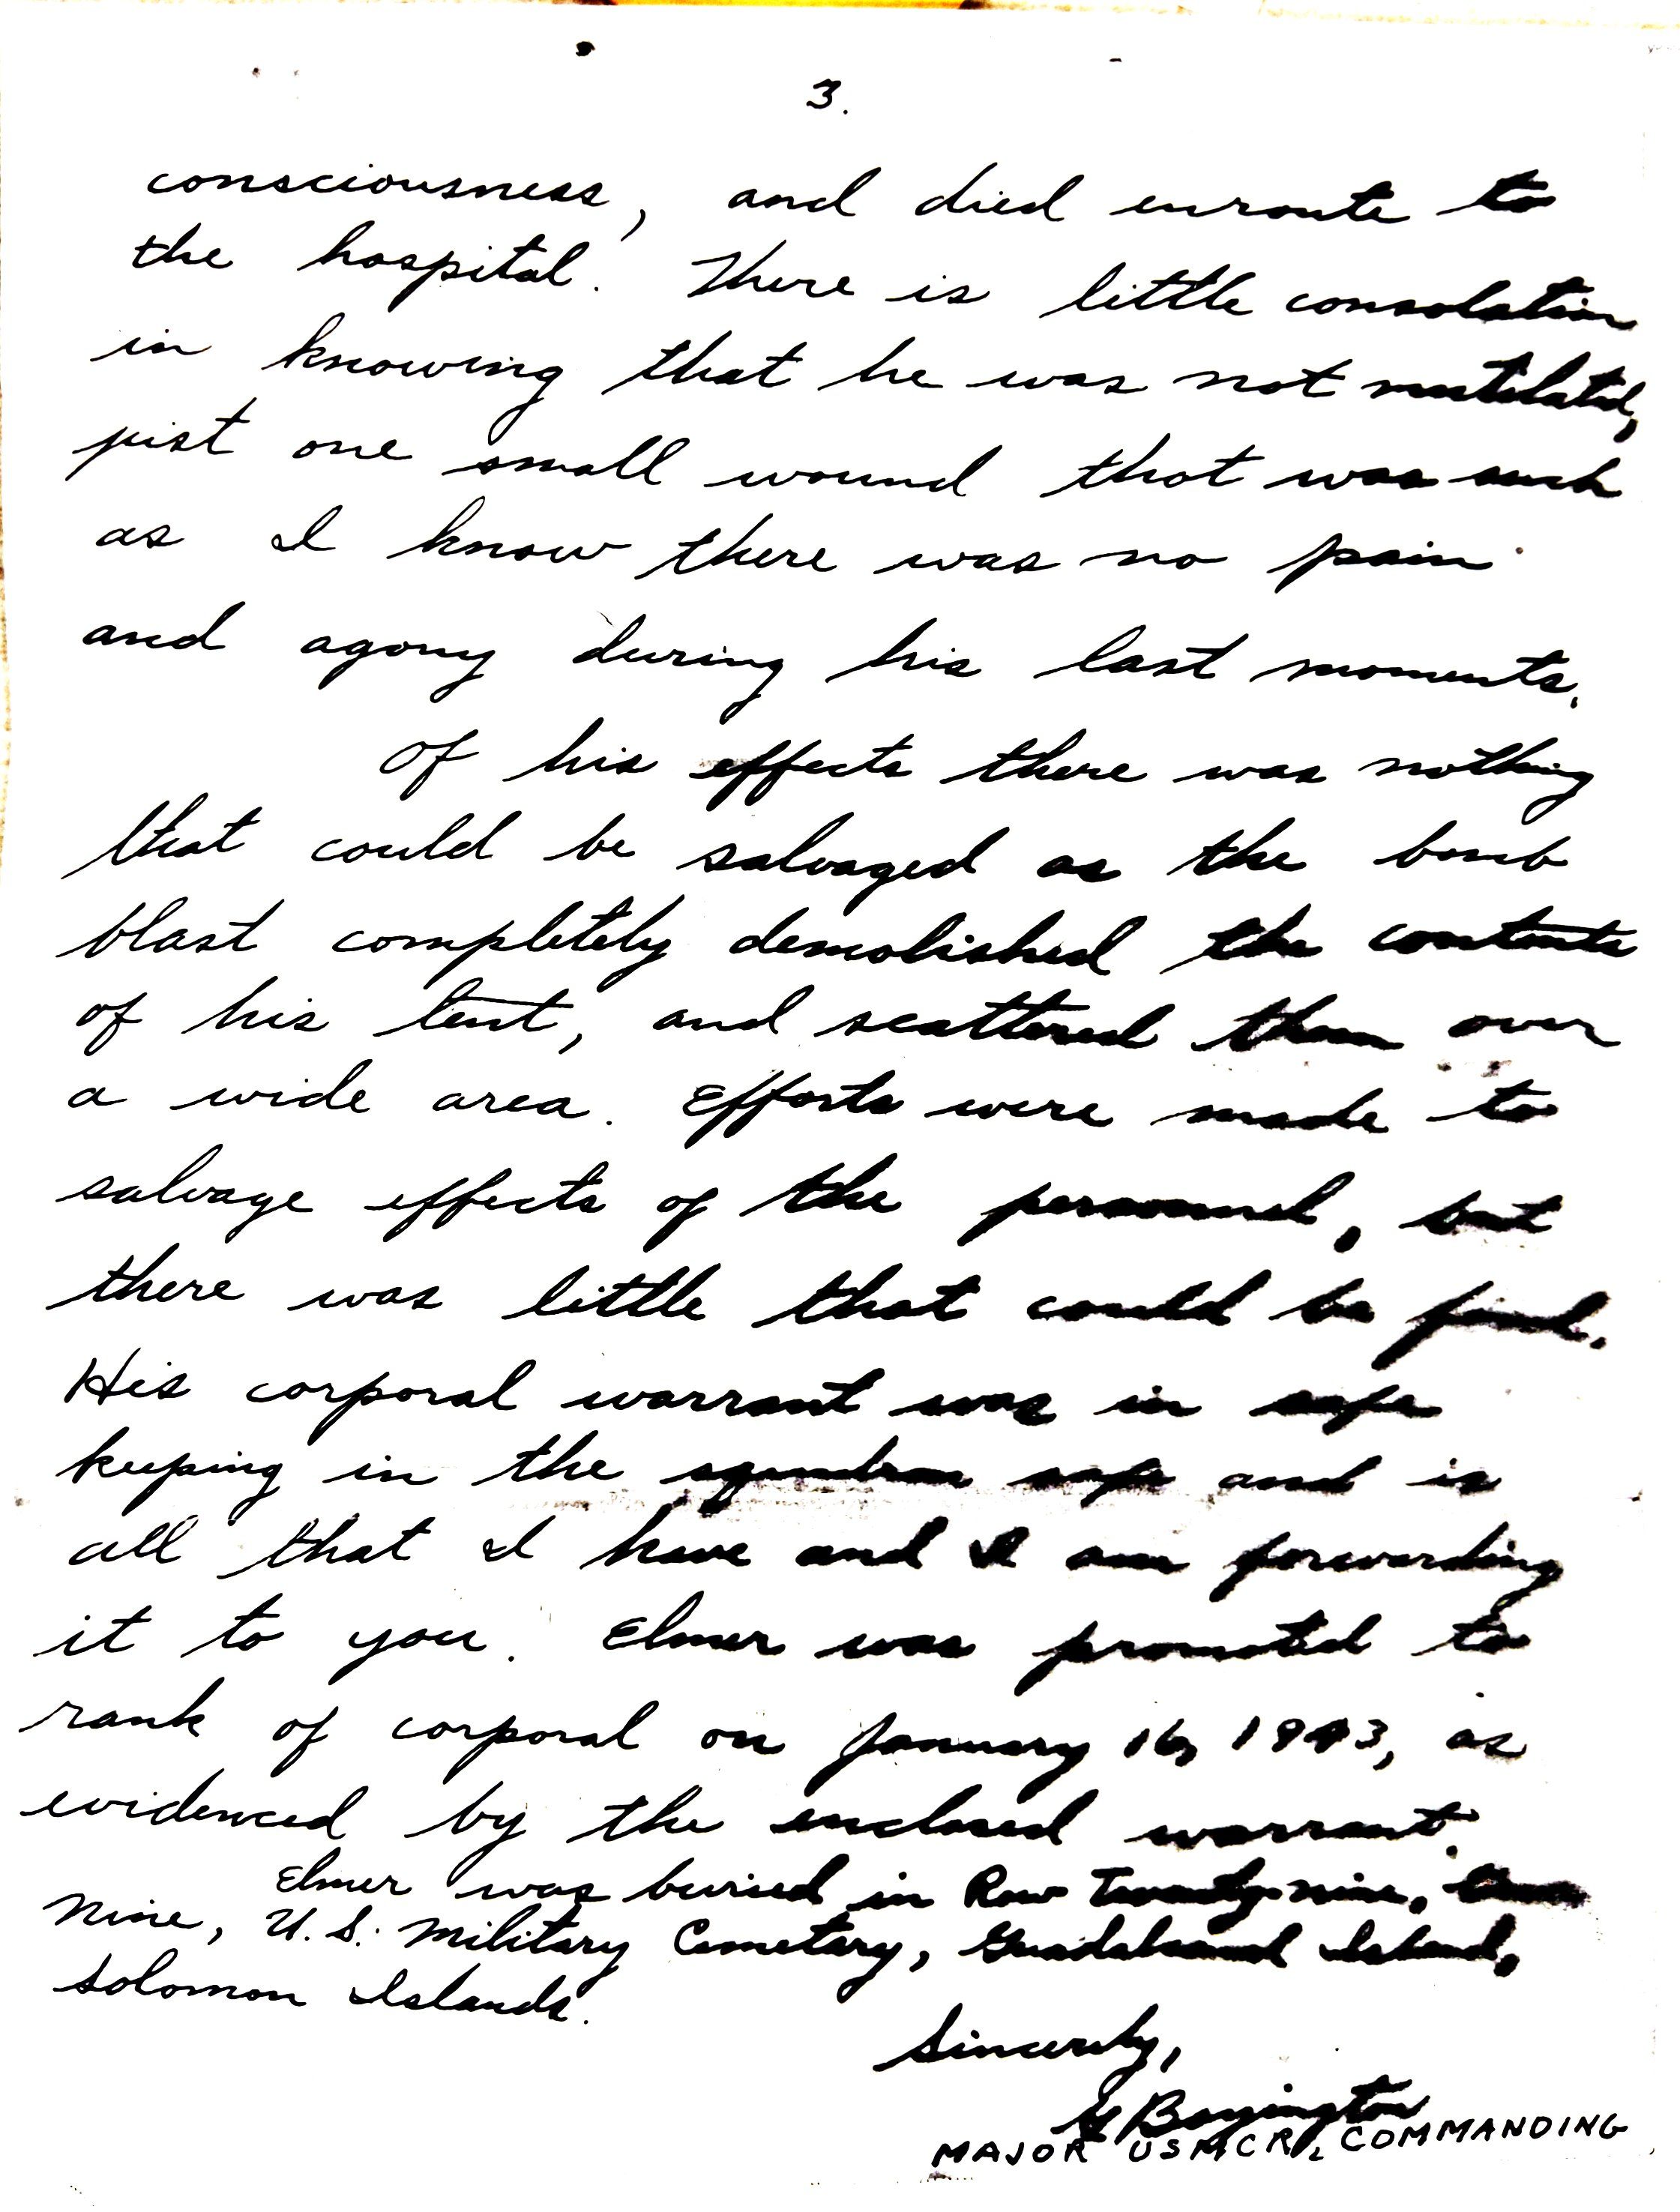 3.
consciousness, and died enroute to
the hospital. There is little consolation
in knowing that he was not mutilated,
just one small wound that was such
as I know there was no pain
and agony during his last moments.
Of his effects there was nothing
that could be salvaged as the bomb
blast completely demolished the contents
of his tent, and scattered them over
a wide area. Efforts were made to
salvage effects of the personnel, but
there was little that could be found.
His corporal warrant was in safe
keeping in the squadron safe and is
all that I have and I am forwarding
it to you. Elmer was promoted to
rank of corporal on January 16, 1943, as
evidenced by the enclosed warrant.
Elmer was buried in Row Twenty-nine,
Nine, U.S. Military Cemetary, Guadalcanal Island,
Solomon Islands.
Sincerely,
G Boyington
MAJOR USMCR, COMMANDING